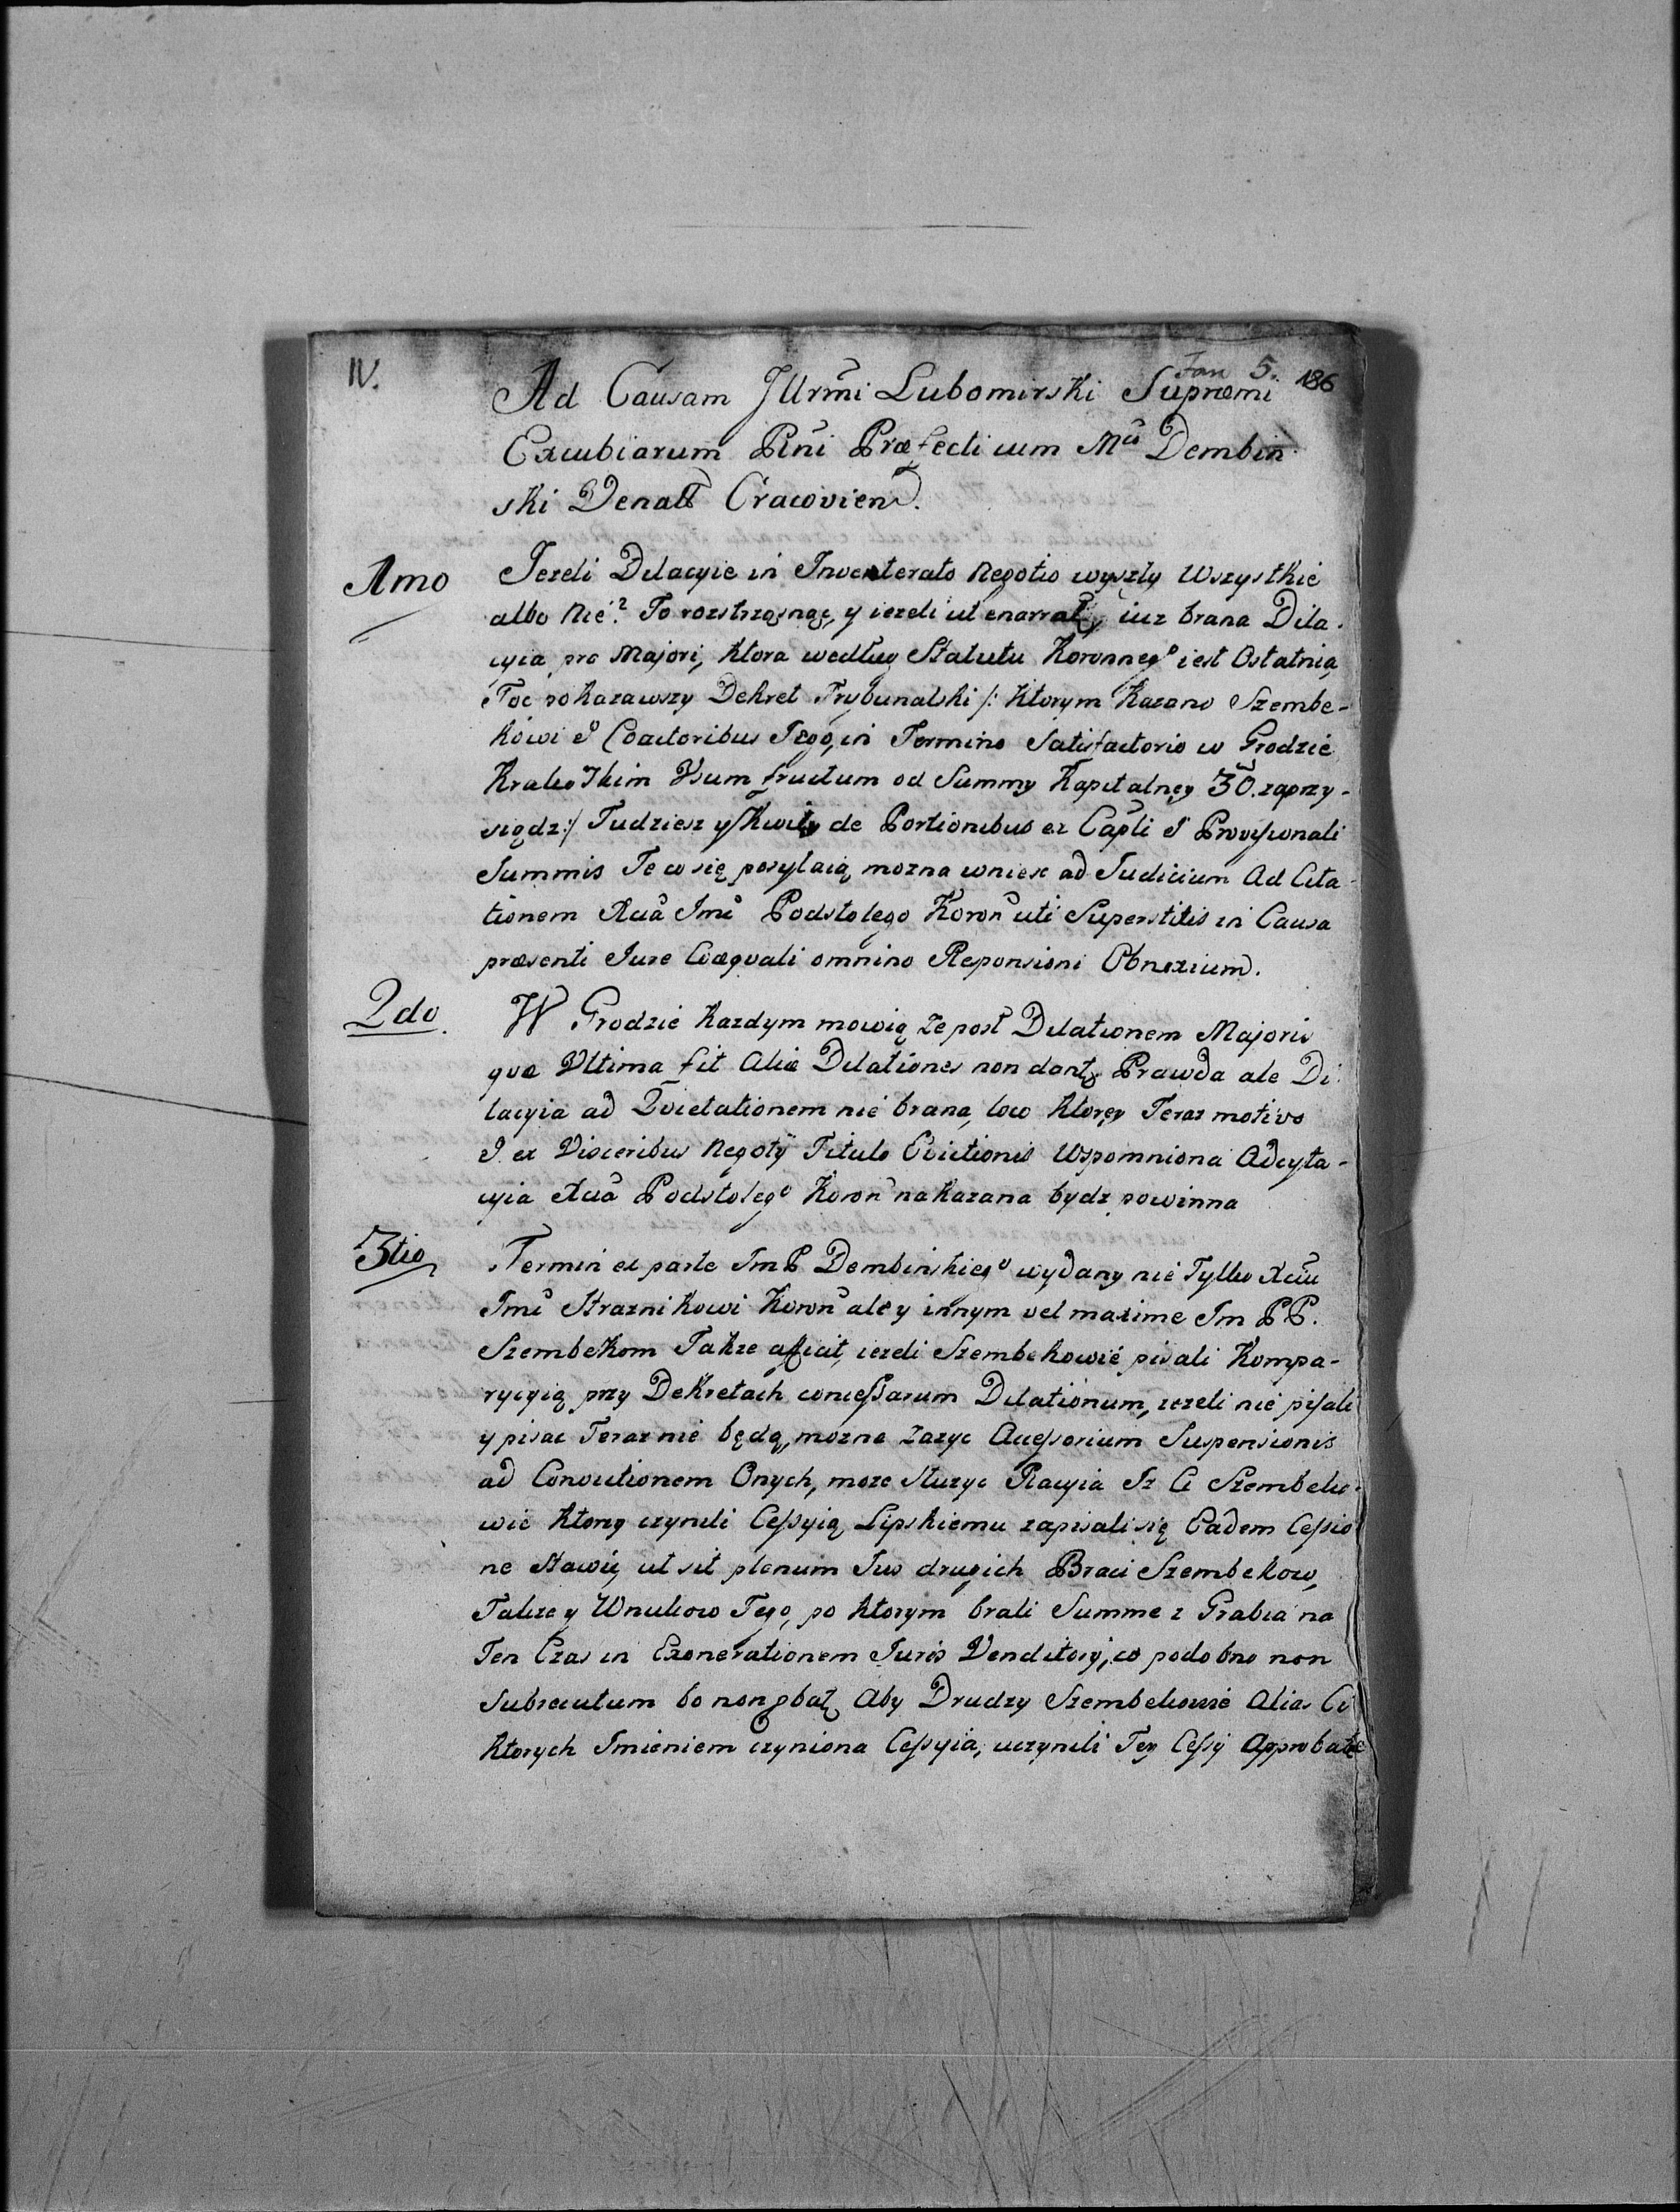 IV.
Jan 5. 186
Ad Causam Jllrm̃i Lubomirski Supræmi
Excubiarum Rñi Præfecti cum Mco Dembin
ski Denatt Cracovien.
Amo Jezeli Dilacyie in Inveterato Negotio wyszły Wszystkie
albo Nie? To roztrząsnąc, y iezeli ut enarrat, iuz brana Dila-
cyia pro Majori, ktora według Statutu Koronnego iest Ostatnią,
Toc pokazawszy Dekret Trybunalski /: ktorym kazano Szembe-
kowi et Coactoribus Tego, in Termino Satisfactorio w Grodzie
Krakoskim Usum fructum od Summy Kapitalney 30. zaprzy-
siądz :/ Tudziesz y Kwity de Portionibus ex Capli et Provisionali
Summis Te co się posyłaią mozna wniesc ad Judicium Ad Cita-
tionem Xcia Jmci Podstolego Koron uti Superstitis in Causa
præsenti Jure Coæquali omnino Reponsioni Obnoxium.
2do. W Grodzie kazdym mowią ze post Dilationem Majoris
quæ Ultima fit Aliæ Dilationes non dantr Prawda ale Di
lacyia ad Quietationem nie brana, loco ktorey Teraz motivo
et ex Visceribus Negotÿ Titulo Evictionis Wspomniona Adcyta-
cyia Xcia Podstolego Koron nakazana bydz powinna
3tio Termin ex parte JmP Dembinskiego wydany nie Tylko Xciu
Jmci Straznikowi Koron ale y innym vel maxime Jm PP.
Szembekom Takze afficit, iezeli Szembekowie pisali Kompa-
rycyią przy Dekretach concessarum Dilationum, iezeli nie pisali
y pisac Teraz nie będą, mozna zazyc Accessorium Suspensionis
ad Convictionem Onych, moze słuzyc Racyia Iz Ci Szembeko-
wie ktorzy czynili Cessyią Lipskiemu zapisali się Eadem Cessio
ne stawic, ut sit plenum Jus drugich Braci Szembekow,
Takze y Wnukow Tego, po ktorym brali Summe z Grabia na
Ten Czas in Exonerationem Juris Venditorij, co podobno non
Subsecutum bo non pbatr Aby Drudzy Szembekowie Alias Ci
ktorych Jmieniem czyniona Cessyia, uczynili Tey Cessÿ Approbate